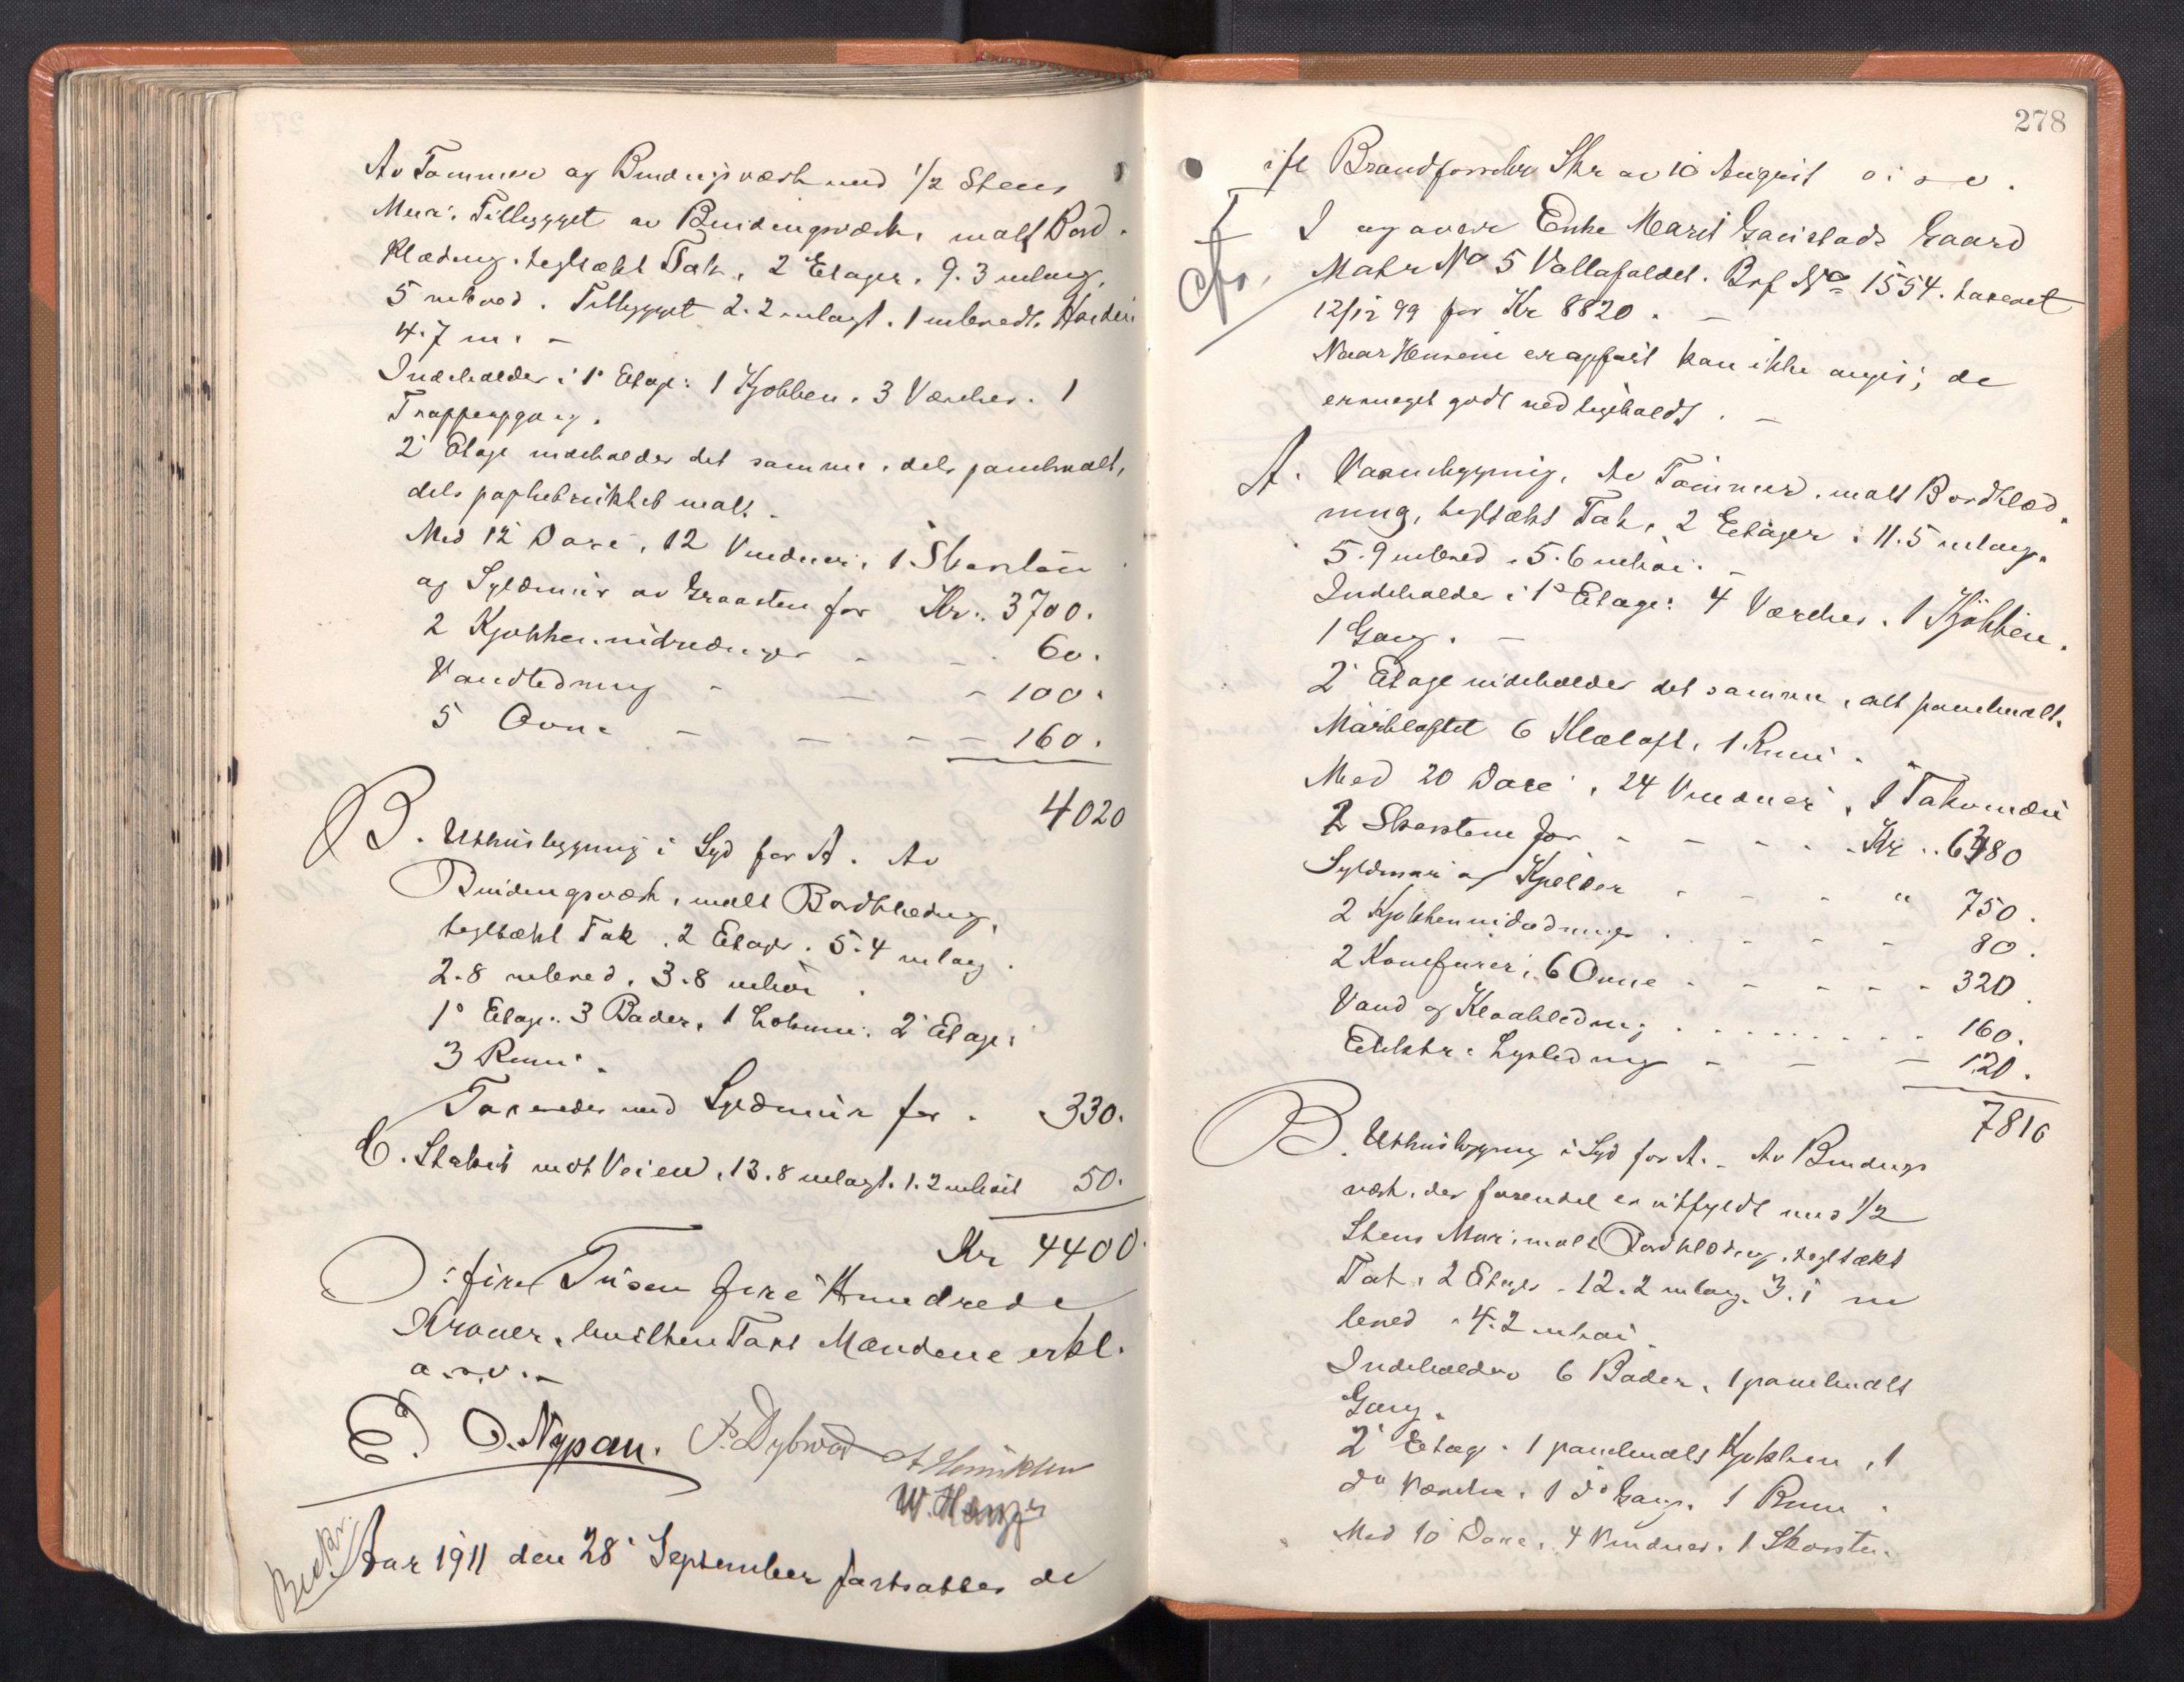 Av Tømmer og Bindingsværk med 1/2 Stens
Mur. Tilbygget av Bindingsværk, malt Bord-
klædning, teglsækt Tak, 2 Etager. 9.3 m lang,
5 m bred. Tilbygget 2.2 m langt. 1 m bredt. Høiden
4.7 m. -
Indeholder i 1' Etage: 1 Kjøkken, 3 Værelser. 1
Trappeopgang.
2' Etage indeholder det samme, dels panelmalt,
dels papbetrukket malt.
Med 12 Døre, 12 Vinduer, 1 Skorsten
og Syldmur av Graasten for Kr. 3700.
2 Kjøkkenindredninger - - 60.
Vandledning - - - 100.
5 Ovne - - - - 160.
4020
B. Uthusbygning i Syd for A. Av
Bindingsværk, malt Bordklædning,
teglsækt Tak. 2 Etager. 5.4 m lang.
2.8 m bred. 3.8 m høi.
1' Etage: 3 Boder, 1 Lokum. 2' Etage:
3 Rum.
Taxeredes med Syldmur for . 330.
C. Stakit mot Veien, 13.8 m langt. 1.2 m høit 50.
Kr 4400.
O: fire Tusen fire Hundrede
Kroner, hvilken Taxt Mændene erkl.
o.s.v. -
E. O. Nypan. P. Dybwad A Henriksen
W. Hangs
Beskr.
Aar 1911 den 28' September fortsattes de
278
ifl Brandforsikr Skr av 10 August o.s.v.
I og over Enke Marit Gaustads Gaard
cfr.
Matr No 5 Vollafaldet. Brf No 1554. taxeret
12/12 99 for Kr 8820. -
Naar Husene er opført kan ikke angis; de
er meget godt vedligeholdt. -
A. Vaaningsbygning, Av Tømmer, malt Bordklæd-
ning, teglsækt Tak, 2 Etager: 11.5 m lang.
5.9 m bred. 5.6 m høi. -
Indeholder i 1' Etage: 4 Værelser. 1 Kjøkken.
1 Gang. -
2' Etage indeholder det samme, alt panelmalt.
Mørkloftet 6 Klæloft, 1 Rum.
Med 20 Døre, 24 Vinduer, 1 Takvindu
2 Skorstene for - - - - Kr. 6380
Syldmur og Kjelder - - - " 750.
2 Kjøkkenindredninger - - - 80.
2 Komfurer, 6 Ovne - - - - 320.
Vand og Kloakledning . . . . . . . 160.
Elektr. Lysledning - - - 120.
7810
B. Uthusbygning i Syd for A. - Av Bindings
værk, der forendel er utfyldt med 1/2
Stens Mur, malt Bordklædning, teglsækt
Tak, 2 Etager. 12.2 m lang. 3.1 m
bred. 4.2 m høi.
Indeholder 6 Boder, 1 panelmalt
Gang.
2' Etage. 1 panelmalt Kjøkken, 1
do Værelse. 1 do Gang. 1 Rum.
Med 10 Døre, 4 Vinduer. 1 Skorsten.